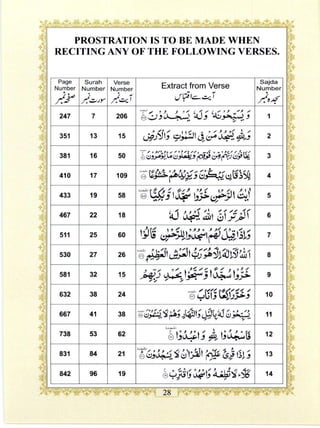 PROSTRATION IS TO BE MADE WHEN
RECITING ANY OF THE FOLLOWING VERSES.
Page Number Surah Number Verse Number Extract from Verse Sajda Number
صفحہ نمبر سورت نمبر آیت نمبر آیت سے اقتباس سجدہ نمبر
247 7 206 وَيُسَبِّحُونَهُ وَلَهُ يَسْجُدُونَ 1
351 13 15 وَلِلَّهِ يَسْجُدُ مَنْ فِي السَّمٰوٰتِ وَالْأَرْضِ 2
381 16 50 يَخَافُونَ رَبَّهُمْ مِنْ فَوْقِهِمْ وَيَفْعَلُونَ مَا يُؤْمَرُونَ 3
410 17 109 وَيَخِرُّونَ لِلْأَذْقَانِ يَبْكُونَ وَيَزِيدُهُمْ خُشُوعًا 4
433 19 58 آيٰتُ الرَّحْمٰنِ خَرُّوا سُجَّدًا وَبُكِيًّا 5
467 22 18 أَلَمْ تَرَ أَنَّ اللَّهَ يَسْجُدُ لَهُ 6
511 25 60 وَإِذَا قِيلَ لَهُمُ اسْجُدُوا لِلرَّحْمٰنِ قَالُوا 7
530 27 26 اللَّهُ لَا إِلٰهَ إِلَّا هُوَ رَبُّ الْعَرْشِ الْعَظِيمِ 8
581 32 15 خَرُّوا سُجَّدًا وَسَبَّحُوا بِحَمْدِ رَبِّهِمْ 9
632 38 24 وَخَرَّ رَاكِعًا وَأَنَابَ 10
667 41 38 يُسَبِّحُونَ لَهُ بِاللَّيْلِ وَالنَّهَارِ وَهُمْ لَا يَسْأَمُونَ 11
738 53 62 فَاسْجُدُوا لِلَّهِ وَاعْبُدُوا 12
831 84 21 وَإِذَا قُرِئَ عَلَيْهِمُ الْقُرْآنُ لَا يَسْجُدُونَ 13
842 96 19 كَلَّا لَا تُطِعْهُ وَاسْجُدْ وَاقْتَرِبْ 14
28